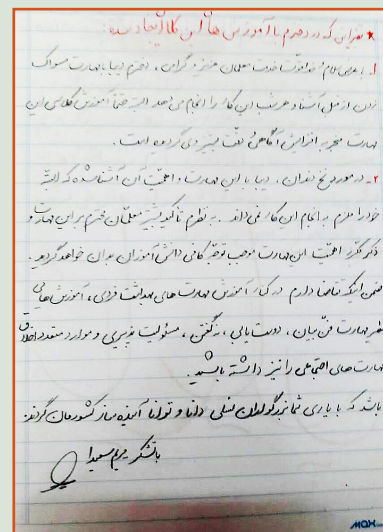 * تغییراتی که در دخترم با آموزش های این کلاس ایجاد شده:
۱- با عرض سلام و خداقوت خدمت معلمان عزیز و گرامی، دخترم دیبا با مهارت مسواک
زدن از قبل آشنا و هر شب این کار را انجام می دهد البته حتماً آموزش کلاسی این
مهارت منجر به افزایش آگاهی دقت بیشتری گردیده است.
۲- در مورد نخ دندان، دیبا با این مهارت و اهمیت آن آشنا شده که البته
خود را ملزم به انجام این کار نمی داند. به نظرم تأکید بیشتر معلمان محترم بر این مهارت و
ذکر مکرر اهمیت این مهارت موجب توجه کافی دانش آموزان بدان خواهد گردید.
ضمن اینکه تقاضا دارم در کنار آموزش مهارت های بهداشت فردی، آموزش هایی
نظیر مهارت فن بیان، دوست یابی، نه گفتن، مسئولیت پذیری و موارد متعدد اخلاق
مهارت های اجتماعی را نیز داشته باشید.
باشد که با یاری شما بزرگواران نسلی دانا و توانا آینده ساز کشورمان گردند.
با تشکر مریم سعیدا
MAX